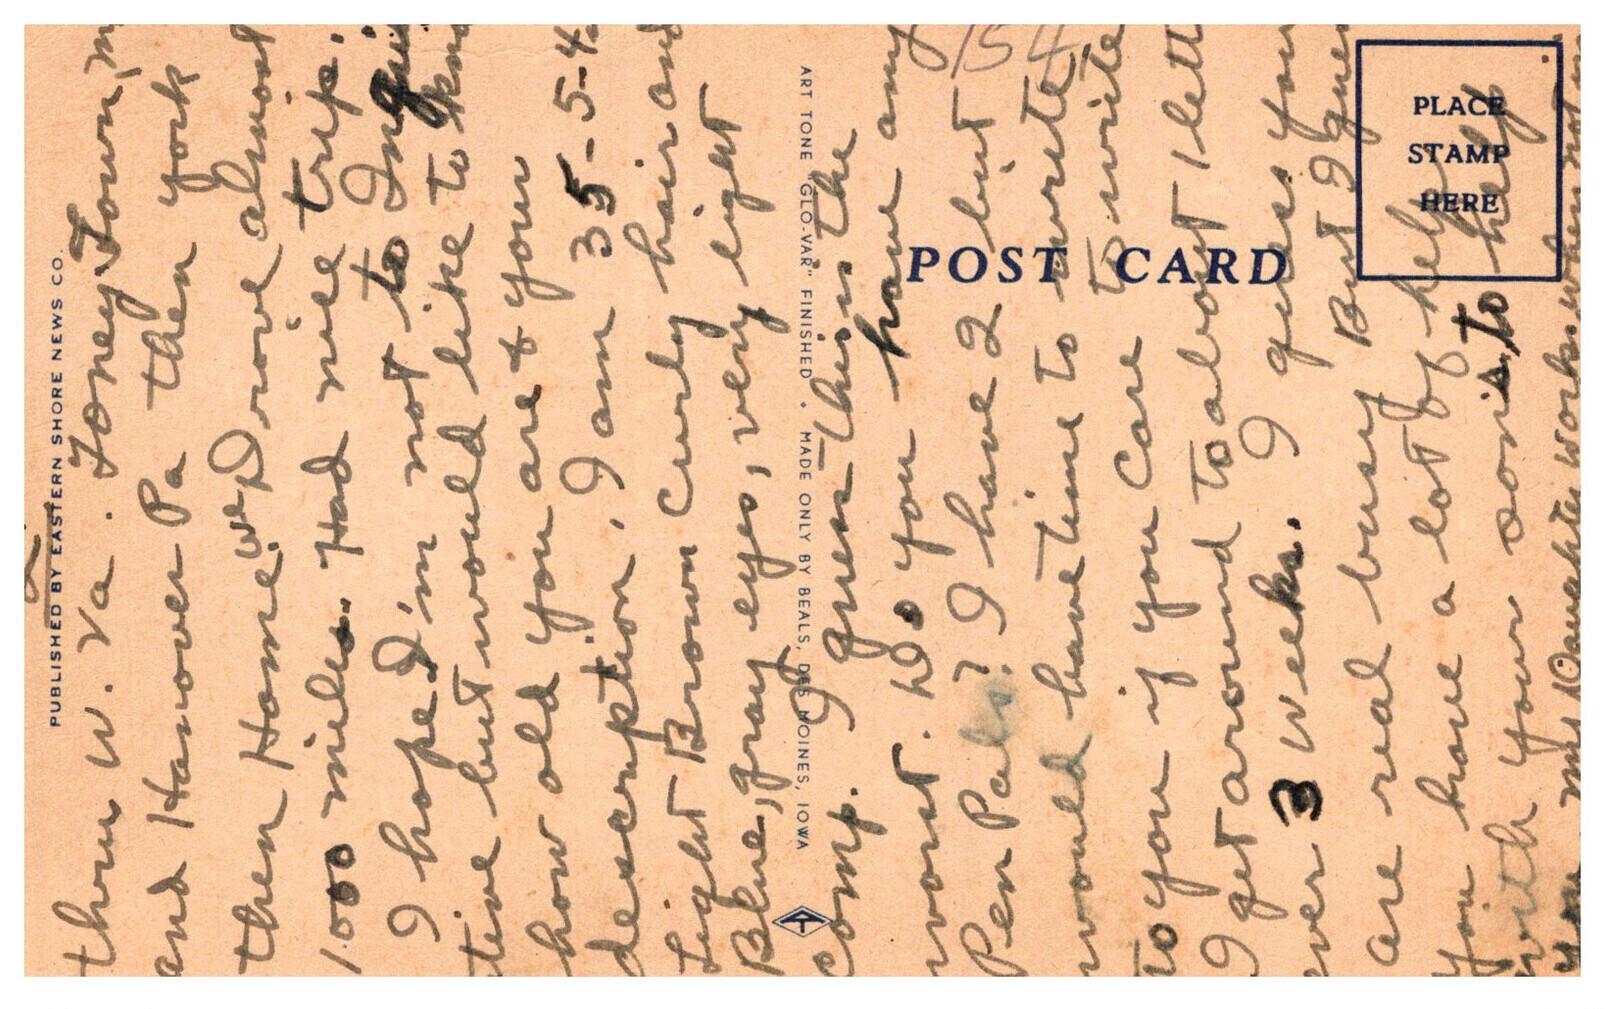 PUBLISHED BY EASTERN SHORE NEWS CO.
thru W. Va. Toney Town, M
and Hanover Pa then york
then Home. we Drove almost
1000 miles. Had nice trip.
I hope I'm not to Inqui
tive but would like to know
how old you are & your
description, I am 35-5-4
Light Brown Curly hair and
Blue, gray eyes, very light
comp. I guess this is the
worst. Do you have any
Pen Pals? I have 2 but
would have time to write
to you if you Care to write
I get around to about 1 lett
ever 3 weeks. I guess you
are real busy But I gues
you have a lot of help
with your sons to help.
my Daughter works when not in
ART TONE "GLO-VAR" FINISHED. MADE ONLY BY BEALS, DES MOINES, IOWA
154
POST CARD
PLACE
STAMP
HERE